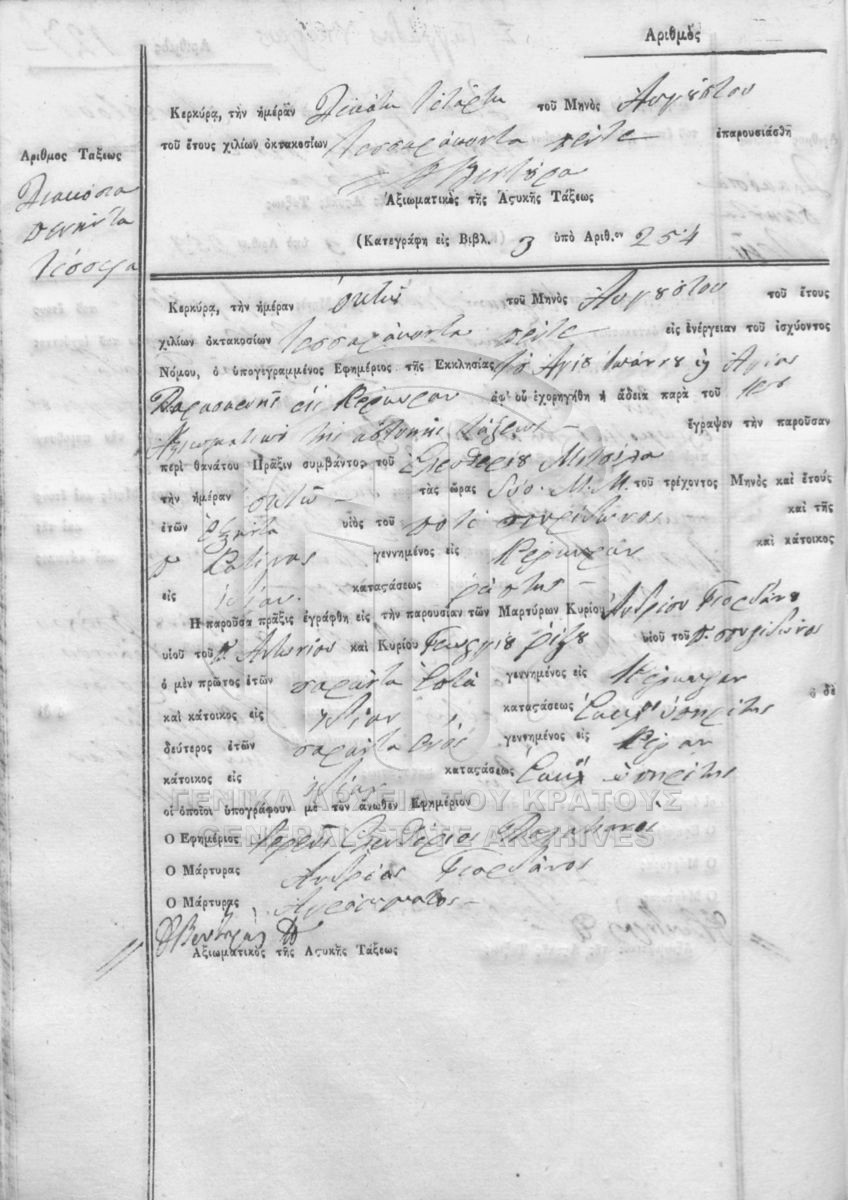 Αριθμός
Κερκύρα, τὴν ἡμέραν Δεκάτη τετάρτη τοῦ Μηνὸς Αυγούστου
τοῦ ἔτους χιλίων ὀκτακοσίων τεσσαράκοντα πέντε ἐπαρουσιάσθη
Βεντούρα
Ἀξιωματικὸς τῆς Ἀςυκῆς Τάξεως
(Κατεγράφη εἰς Βιβλ. 3 ὑπὸ Ἀριθ.ον 254
Αριθμος Ταξεως
Διακόσια
πενήντα
τέσσερα
Κερκύρα, τὴν ἡμέραν οκτώ τοῦ Μηνὸς Αυγούστου τοῦ ἔτους
χιλίων ὀκτακοσίων τεσσαράκοντα πέντε εἰς ἐνέργειαν τοῦ ἰσχύοντος
Νόμου, ὁ ὑπογεγραμμένος Ἐφημέριος τῆς Ἐκκλησίας του Αγίου Ιωάννου και Αγίας
Παρασκευής εις Κέρκυραν ἀφ' οὗ ἐχορηγήθη ἡ ἄδεια παρὰ τοῦ
Αξιωματικού της αστυκής τάξεως ἔγραψεν τὴν παροῦσαν
περὶ θανάτου Πρᾶξιν συμβάντος τοῦ Ελευθερίου
τὴν ἡμέραν οκτώ τὰς ὥρας δύο Μ.Μ. τοῦ τρέχοντος Μηνὸς καὶ ἔτους
ἐτῶν εξήντα υἱὸς τοῦ ποτέ σπυρίδωνος καὶ τῆς
π γεννημένος εἰς Κέρκυραν καὶ κάτοικος
εἰς ιδίαν καταςάσεως ράπτης
Ἡ παροῦσα πρᾶξις ἐγράφθη εἰς τὴν παρουσίαν τῶν Μαρτύρων Κυρίου Ανδρέου Γιορδάνου
υἱοῦ τοῦ π. Αντωνίου καὶ Κυρίου Γεωργίου ρίζου υἱοῦ τοῦ π. σπυρίδωνος
ὁ μὲν πρῶτος ἐτῶν σαράντα επτά γεννημένος εἰς Κέρκυραν
καὶ κάτοικος εἰς ιδίαν καταςάσεως υπηρέτης ὁ δὲ
δεύτερος ἐτῶν σαράντα ενός γεννημένος εἰς Κέρκυραν
κάτοικος εἰς ιδίαν καταςάσεως υπηρέτης
οἱ ὁποῖοι ὑπογράφουν μὲ τὸν ἄνωθεν Ἐφημέριον
Ὁ Ἐφημέριος Ιερεύς Ελευθέριος
Ὁ Μάρτυρας Ανδρέας Γιορδάνος
Ὁ Μάρτυρας Αγράμματος
Βεντούρας
Ἀξιωματικὸς τῆς Ἀςυκῆς Τάξεως
ΓΕΝΙΚΑ ΑΡΧΕΙΑ ΤΟΥ ΚΡΑΤΟΥΣ
GENERAL STATE ARCHIVES